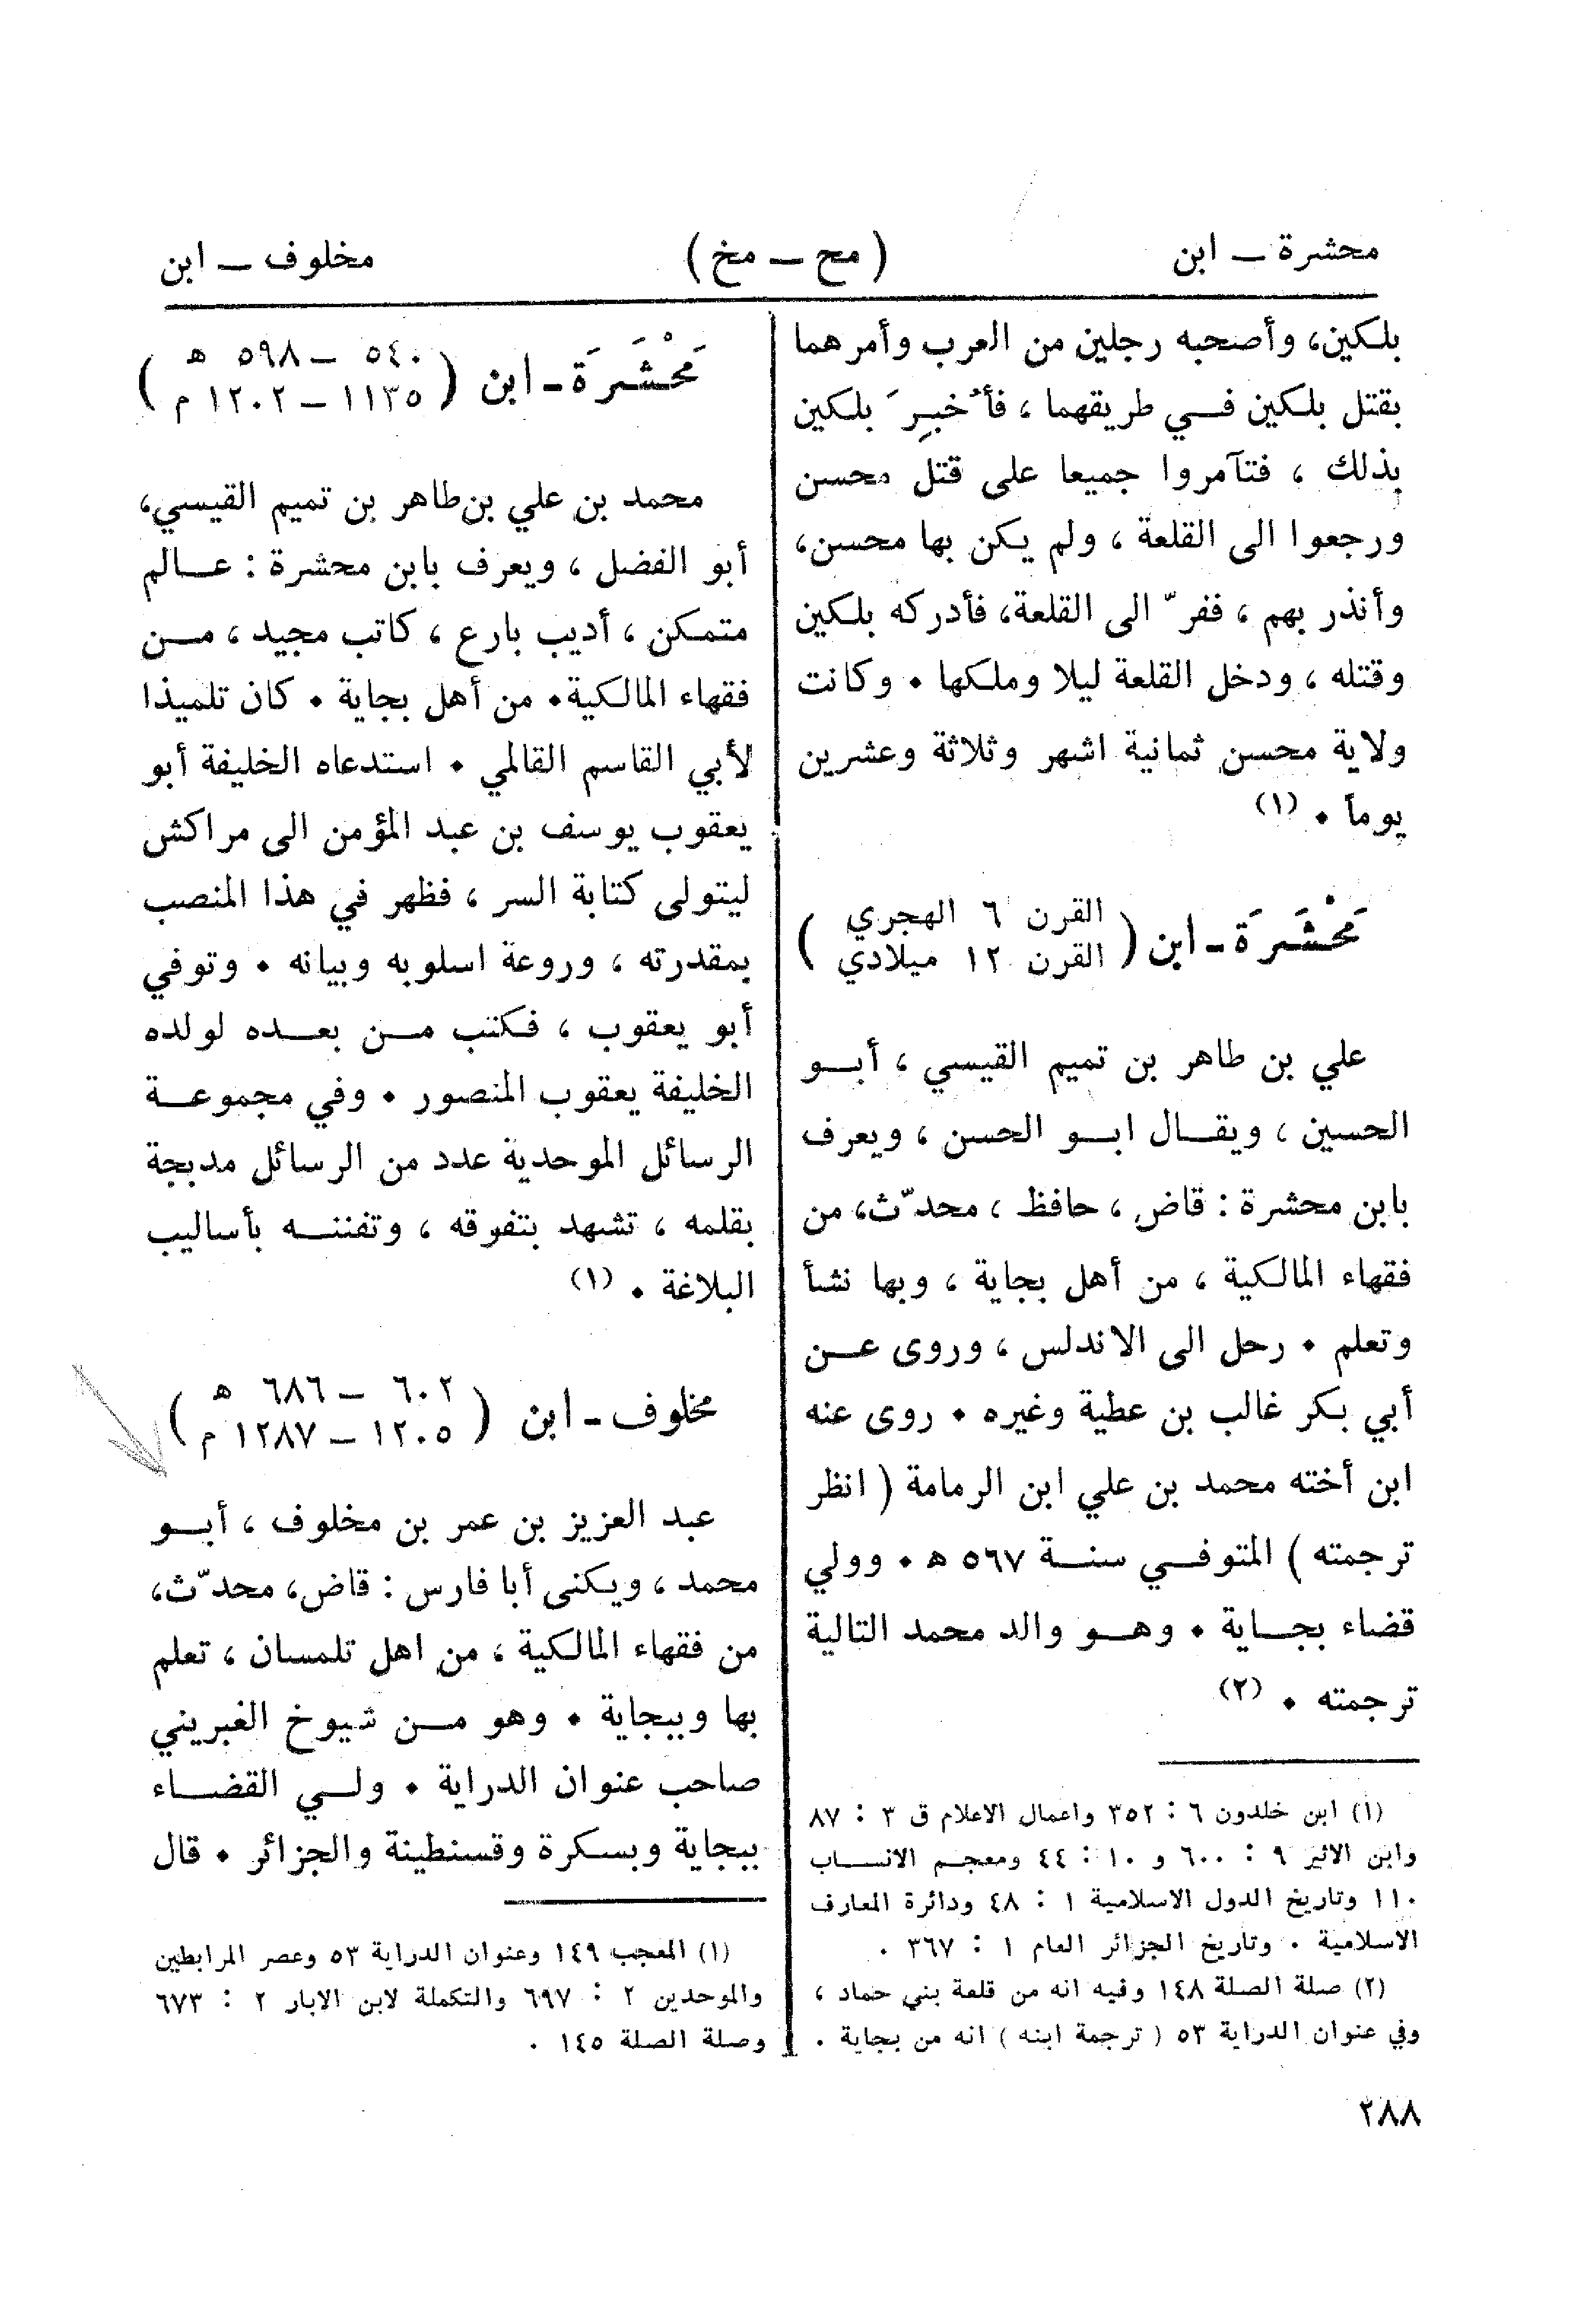 محشرة ــ ابن
( مح ــ مخ )
مخلوف ــ ابن
بلكين، وأصحبه رجلين من العرب وأمرهما
بقتل بلكين فــي طريقهما ، فأُخبِرَ بلكين
بذلك ، فتآمروا جميعا على قتل محسن
ورجعوا الى القلعة ، ولم يكن بها محسن،
وأنذر بهم ، ففرّ الى القلعة، فأدركه بلكين
وقتله ، ودخل القلعة ليلا وملكها ٠ وكانت
ولاية محسن ثمانية اشهر وثلاثة وعشرين
يوماً ٠ (١)
مَحْشَرَة ـ ابن ( القرن ٦ الهجري
القرن ١٢ ميلادي )
علي بن طاهر بن تميم القيسي ، أبــو
الحسين ، ويقــال ابــو الحسن ، ويعرف
بابن محشرة : قاض ، حافظ ، محدّث، من
فقهاء المالكية ، من أهل بجاية ، وبها نشأ
وتعلم ٠ رحل الى الاندلس ، وروى عــن
أبي بكر غالب بن عطية وغيره ٠ روى عنه
ابن أخته محمد بن علي ابن الرمامة ( انظر
ترجمته ) المتوفــي سنــة ٥٦٧ هـ ٠ وولي
قضاء بجــاية ٠ وهــو والد محمد التالية
ترجمته ٠ (٢)
(١) ابن خلدون ٦ : ٣٥٢ واعمال الاعلام ق ٣ : ٨٧
وابن الاثير ٩ : ٦٠٠ و ١٠ : ٤٤ ومعجــم الانســاب
١١٠ وتاريخ الدول الاسلامية ١ : ٤٨ ودائرة المعارف
الاسلامية . وتاريخ الجزائر العام ١ : ٣٦٧ .
(٢) صلة الصلة ١٤٨ وفيه انه من قلعة بني حماد ،
وفي عنوان الدراية ٥٣ ( ترجمة ابنه ) انه من بجاية .
مَحْشَرَة ـ ابن ( ٥٤٠ ــ ٥٩٨ هـ
١١٣٥ ــ ١٢٠٢ م )
محمد بن علي بن طاهر بن تميم القيسي،
أبو الفضل ، ويعرف بابن محشرة : عــالم
متمكن ، أديب بارع ، كاتب مجيد ، مــن
فقهاء المالكية٠ من أهل بجاية ٠ كان تلميذا
لأبي القاسم القالمي ٠ استدعاه الخليفة أبو
يعقوب يوسف بن عبد المؤمن الى مراكش
ليتولى كتابة السر ، فظهر في هذا المنصب
بمقدرته ، وروعة اسلوبه وبيانه ٠ وتوفي
أبو يعقوب ، فكتب مــن بعــده لولده
الخليفة يعقوب المنصور ٠ وفي مجموعــة
الرسائل الموحدية عدد من الرسائل مدبجة
بقلمه ، تشهد بتفوقه ، وتفننــه بأساليب
البلاغة ٠ (١)
مخلوف ـ ابن ( ٦٠٢ ــ ٦٨٦ هـ
١٢٠٥ ــ ١٢٨٧ م )
عبد العزيز بن عمر بن مخلوف ، أبــو
محمد ، ويكنى أبا فارس : قاض، محدّث،
من فقهاء المالكية ، من اهل تلمسان ، تعلم
بها وببجاية ٠ وهو مــن شيوخ الغبريني
صاحب عنوان الدراية ٠ ولــي القضــاء
ببجاية وبسكرة وقسنطينة والجزائر ٠ قال
(١) المعجب ١٤٩ وعنوان الدراية ٥٣ وعصر المرابطين
والموحدين ٢ : ٦٩٧ والتكملة لابن الابار ٢ : ٦٧٣
وصلة الصلة ١٤٥ .
٢٨٨